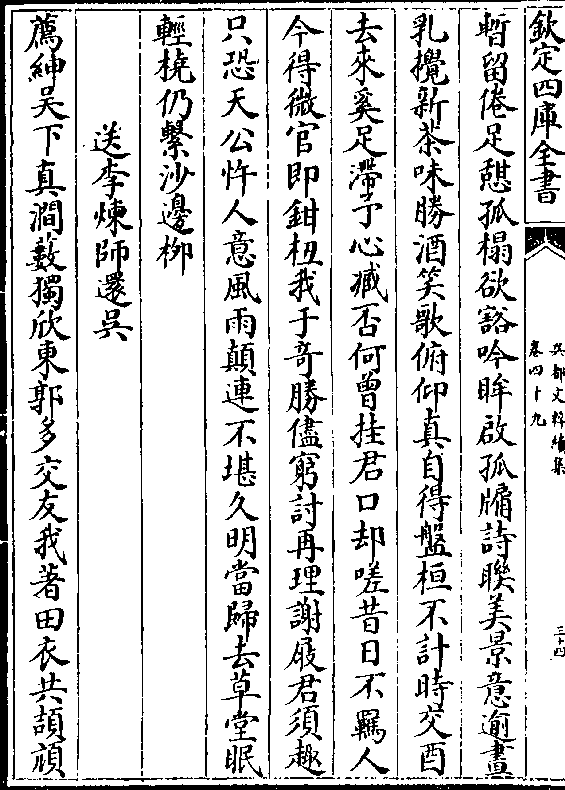 欽定四庫全書
吳都文粹續集
卷四十九
三十四
暫留倦足憇孤榻欲豁吟眸啟孤牖詩聯美景意逾畫
乳攪新茶味勝酒笑歌俯仰真自得盤桓不計時交酉
去來奚足滯予心臧否何曾挂君口却嗟昔日不羈人
今得微官即鉗杻我于竒勝儘窮討再理謝屐君須趣
只恐天公忤人意風雨顛連不堪久明當歸去草堂眠
輕橈仍繫沙邊柳
送李煉師還吳
薦紳吳下真澗藪獨欣東郭多交友我著田衣共頡頏